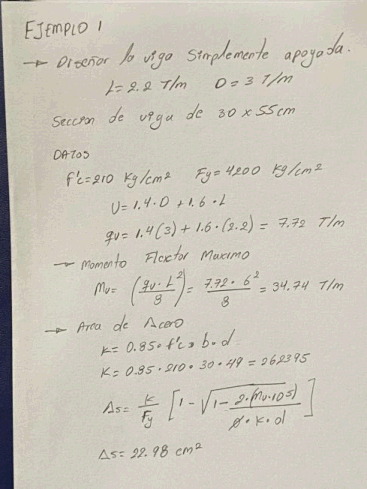 EJEMPLO 1
→ Diseñar la viga simplemente apoyada.
L= 2.2 T/m D= 3 T/m
Seccion de viga de 30 x 55 cm
DATOS
f'c=210 Kg/cm² Fy=4200 Kg/cm²
U= 1.4·D + 1.6·L
qu= 1.4(3) + 1.6·(2.2) = 7.72 T/m
→ Momento Flector Maximo
Mu= (qu·L²/8) = 7.72·6²/8 = 34.74 T/m
→ Area de Acero
K= 0.85·f'c·b·d
K= 0.85·210·30·49 = 262395
As= K/Fy [1-√1- 2·(Mu·10⁵)/ø·K·d]
As= 22.98 cm²